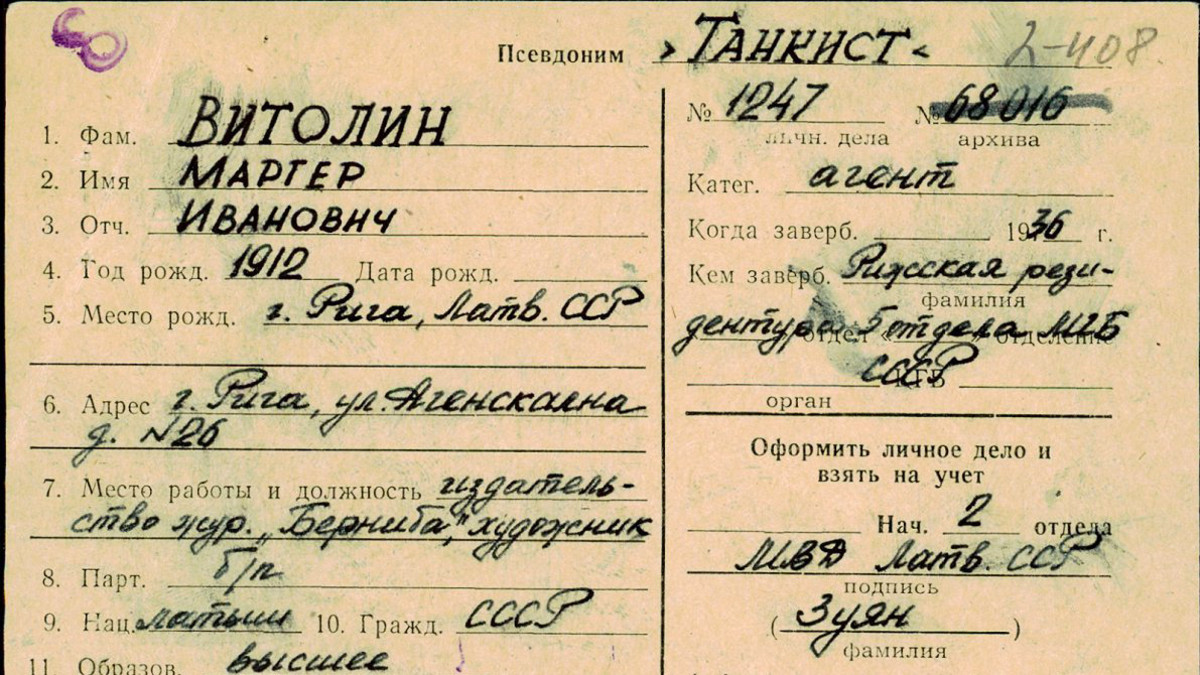 Псевдоним «ТАНКИСТ»
2-408.
1. Фам. ВИТОЛИН
2. Имя МАРГЕР
3. Отч. ИВАНОВИЧ
4. Год рожд. 1912 Дата рожд.
5. Место рожд. г. Рига, Латв. ССР
6. Адрес г. Рига, ул. Агенскална
д. №26
7. Место работы и должность издатель-
ство жур. „Берниба", художник
8. Парт. б/п
9. Нац. латыш 10. Гражд. СССР
11. Образов. высшее
№ 1247 № 68016
личн. дела архива
Катег. агент
Когда заверб. 1936 г.
Кем заверб. Рижская рези-
фамилия
дентура 5 отдела МГБ
отдел отделение
СССР
КГБ
орган
Оформить личное дело и
взять на учет
Нач. 2 отдела
МВД Латв. ССР
подпись
(Зуян)
фамилия